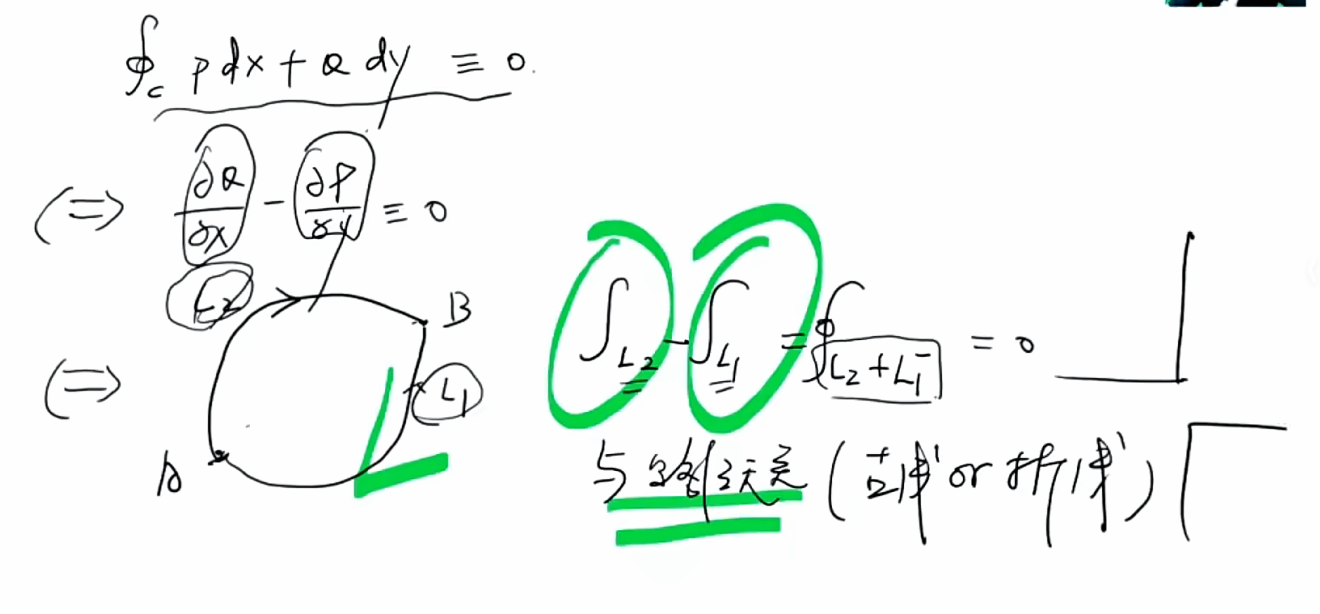 ∮_C P dx + Q dy ≡ 0.
(⇔) ∂Q/∂x - ∂P/∂y ≡ 0
L₂
B
(⇔)
L₁
A
∫_{L₂} - ∫_{L₁} = ∮_{L₂+L₁⁻} = 0
与路径无关 (直线 or 折线)